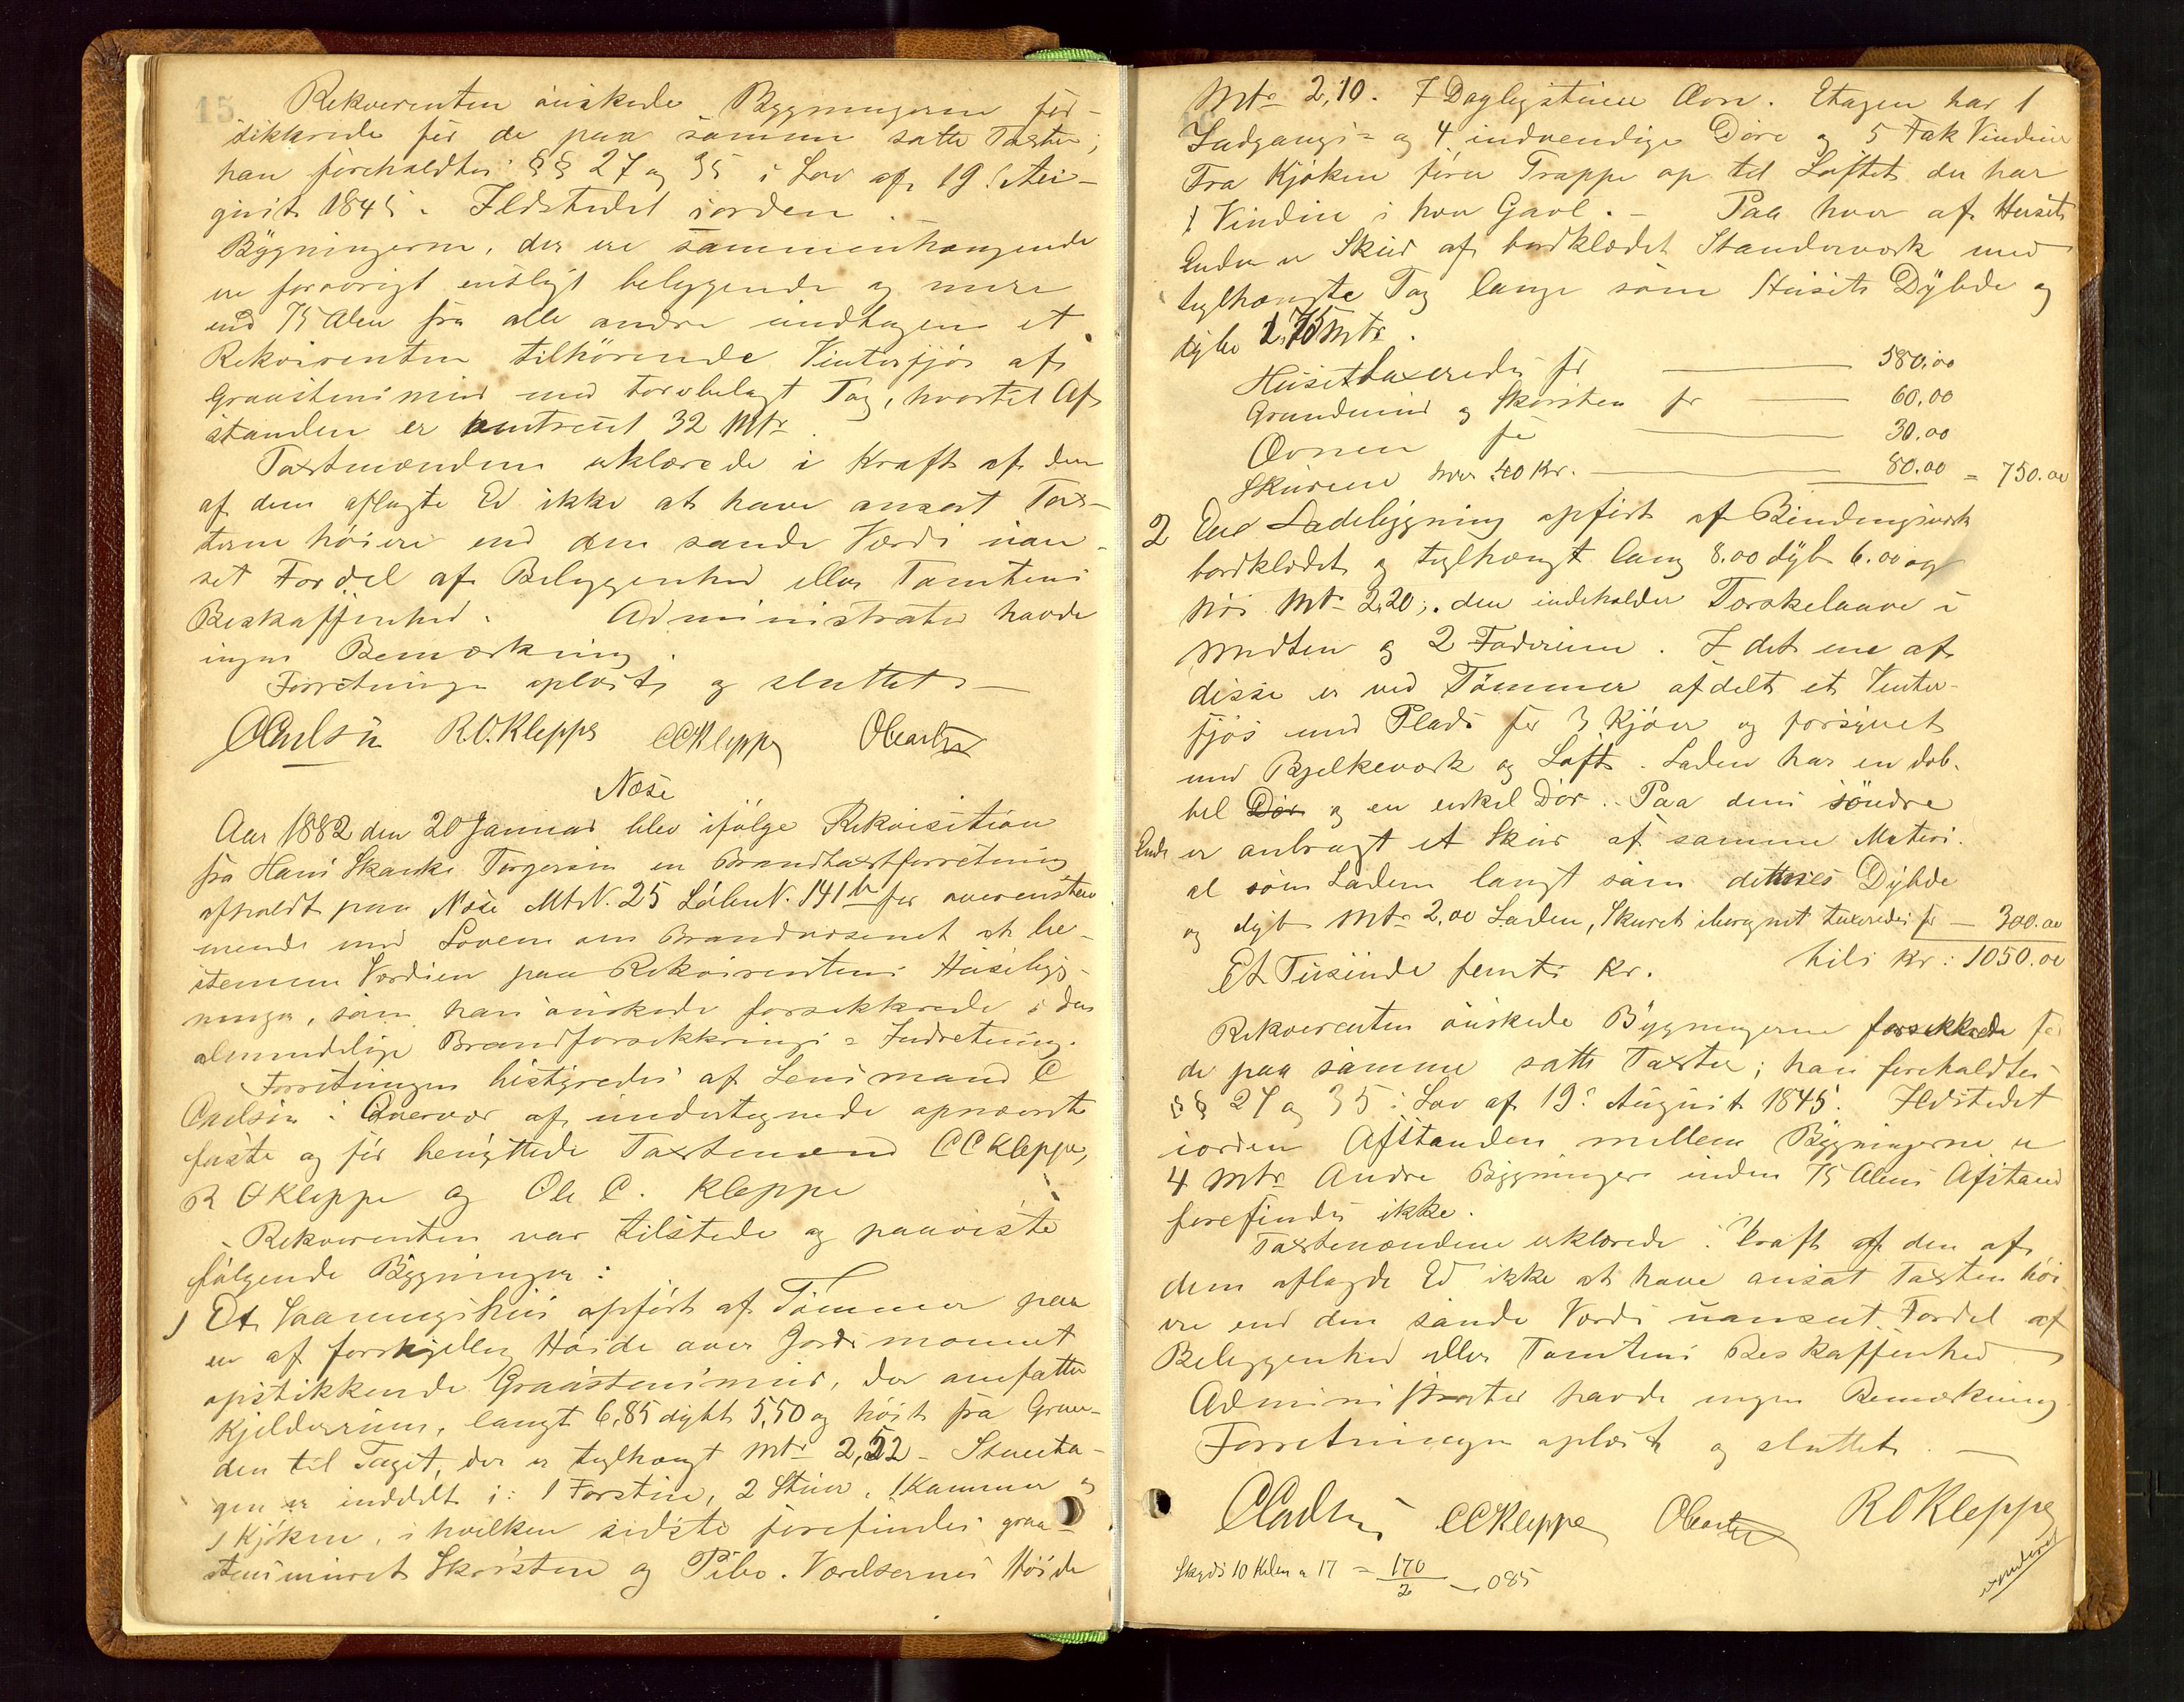 15
Rekvirenten önskede Bygningerne for-
sikkrede for de paa samme satte Taxter;
han foreholdtes §§ 27 og 35 i Lov af 19. Au-
gust 1845. Ildstedet iorden.
Bygningerne, der ere sammenhængende
ere forøvrigt ensligt beliggende og mere
end 75 Alen fra alle andre undtagen et
Rekvirenten tilhörende Vinterfjös af
Graastensmur med torvbelagt Tag, hvortil Af-
standen er omtrent 32 Mtr.
Taxtmændene erklærede i Kraft af den
af dem aflagte Ed ikke at have ansat Tax-
terne höiere end den sande Værdi uan-
set Fordel af Beliggenhed eller Tomtens
Beskaffenhed. Administrator havde
ingen Bemærkning.
Forretningen oplæst og sluttet.
CCarlsen R.O.Kleppe CCKleppe OCarlsen
Næse
Aar 1882 den 20 Januar blev ifölge Rekvisition
fra Hans Skanke Torgersen en Brandtaxtforretning
afholdt paa Næse MtN. 25 LöbeN. 141b for overensstem
mende med Loven om Brandvæsenet at be-
stemme Værdien paa Rekvirentens Husebyg-
ninger, som han önskede forsikkrede i den
almindelige Brandforsikkrings-Indretning.
Forretningen bestyredes af Lensmand C
Carlsen i Overvær af undertegnede opnævnte
faste og för benyttede Taxtmænd CCKleppe,
R O Kleppe og Ole C. Kleppe
Rekvirenten var tilstede og paaviste
fölgende Bygninger:
1 Et Vaaningshus opfört af Tömmer paa
en af forskjellig Höide over Jordsmonnet
opstikkende Graastensmur, der omfatter
Kjelderrum, langt 6,85 dybt 5,50 og höit fra Grun-
den til Taget, der er teglhængt Mtr 2,52 - Stueeta-
gen er inddelt i: 1 Forstue, 2 Stuer, 1 Kammer og
1 Kjöken, i hvilken sidste forefindes graa-
stensmuret Skorsten og Pibe. Værelsernes Höide
Mtr 2,10. I Dagligstuen Ovn. Etagen har 1
Indgangs- og 4 indvendige Döre og 5 Fak Vinduer
Fra Kjöken förer Trappe op til Loftet der har
1 Vindue i hver Gavl. - Paa hver af Husets
Ender er Skur af bordklædet Standerværk med
teglhængte Tag lange som Husets Dybde og
dybe 1,75 Mtr.
Huset taxeredes for 580.00
Grundmur og Skorsten for 60.00
Ovnen for 30.00
Skurene hver 40 Kr. 80.00 = 750.00
2 En Ladebygning opfört af Bindingsverk
bordklædet og teglhængt lang 8.00 dyb 6.00 og
höi Mtr 2,20; den indeholder Torskelaave i
Midten og 2 Foderrum. I det ene af
disse er ved Tömmer afdelt et Vinter-
fjös med Plads for 3 Kjöer og forsynet
med Bjelkeværk og Loft. Laden har en dob-
bel Dör og en enkel Dör. Paa dens söndre
Ende er anbragt et Skur af samme Materi-
al som Laden langt som dennes Dybde
og dybt Mtr 2,00 Laden, Skuret iberegnet taxeredes for - 300.00
Et Tusinde femti Kr. tils Kr: 1050.00
Rekvirenten önskede Bygningerne forsikkrede for
de paa samme satte Taxter; han foreholdtes
§§ 27 og 35 i Lov af 19. August 1845. Ildstedet
iorden Afstanden mellem Bygningerne er
4 Mtr Andre Bygninger inden 75 Alens Afstand
forefindes ikke.
Taxtmændene erklærede i Kraft af den af
dem aflagde Ed ikke at have ansat Taxten höi
ere end den sande Værdi uanseet Fordel af
Beliggenhed eller Tomtens Beskaffenhed
Administrator havde ingen Bemærkning
Forretningen oplæst og sluttet.
CCarlsen CCKleppe OCarlsen R O Kleppe
Skyds 10 Kilom a 17 = 170/2 - 085